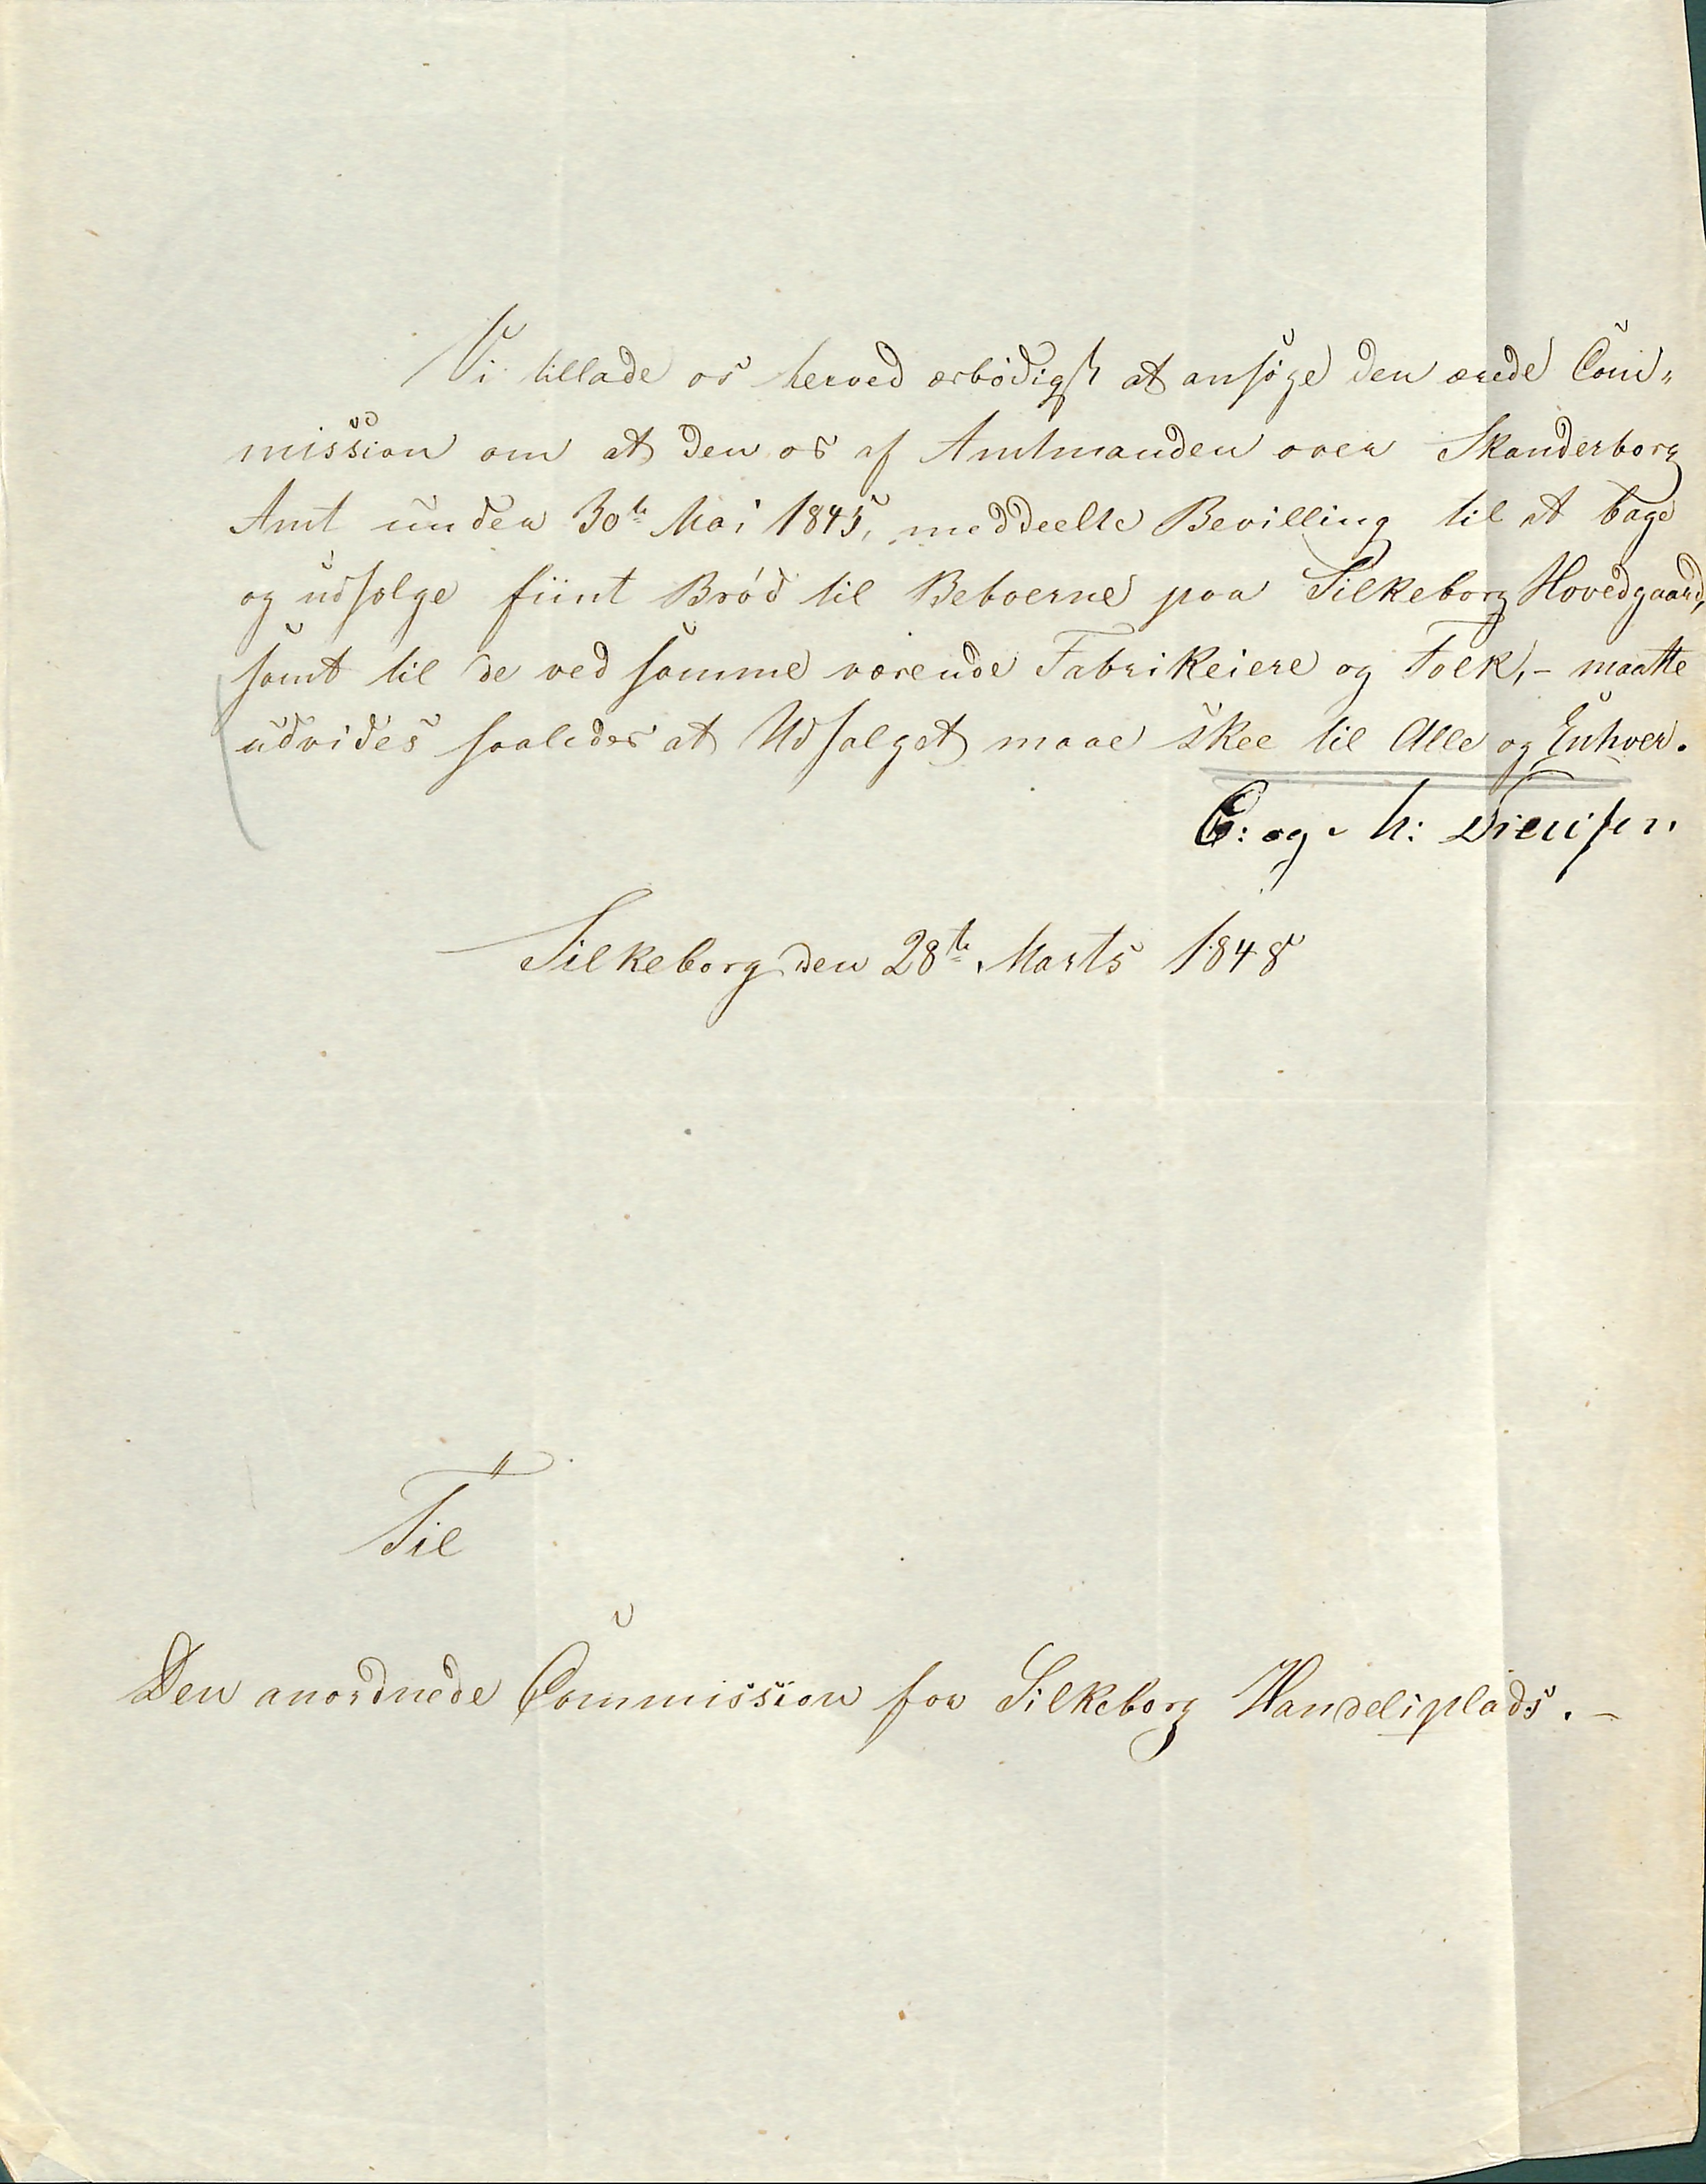 Vi tillade os herved ærbödigst at ansöge den ærede Com„
mission om at den os af Amtmanden over Skanderborg
Amt under 30te Mai 1845, meddeelte Bevilling til at bage
og udsælge fiint Bröd til Beboerne paa Silkeborg Hovedgaard,
samt til de ved samme værende Fabrikeiere og Folk, – maatte
udvides saaledes at Udsalget maae skee til Alle og Enhver.
C: og N:
Silkeborg den 28te Marts 1848
Til
Den anordnede Commission for Silkeborg Handelsplads. –